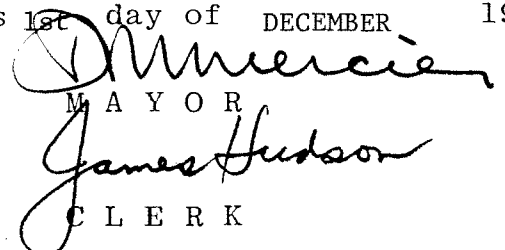 s 1st day of DECEMBER 19
D Mercier
M A Y O R
James Hudson
C L E R K